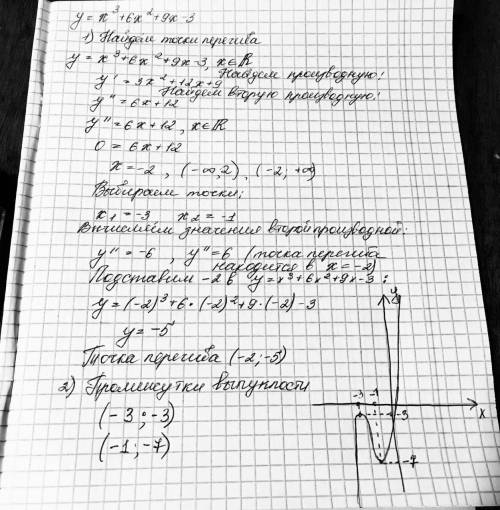 y = x³+6x²+9x-3
1) Найдем точки перегиба
y = x³+6x²+9x-3, x∈ℝ
Найдем производную:
y' = 3x²+12x+9
Найдем вторую производную:
y'' = 6x+12
y'' = 6x+12, x∈ℝ
0 = 6x+12
x = -2, (-∞,2), (-2; +∞)
Выбираем точки:
x₁ = -3 x₂ = -1
Вычисляем значения второй производной:
y'' = -6, y'' = 6 (точка перегиба
находится в x = -2)
Подставим -2 в y = x³+6x²+9x-3:
y = (-2)³+6·(-2)²+9·(-2)-3
y = -5
Точка перегиба (-2;-5)
2) Промежутки выпуклости
(-3;-3)
(-1;-7)
y
-3 -1
x
-3
-7